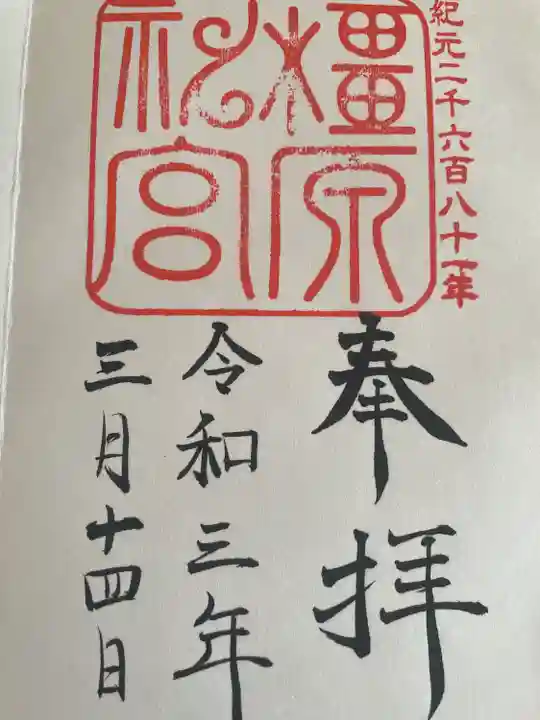 紀元二千六百八十一年
橿原
神宮
奉拝
令和三年
三月十四日